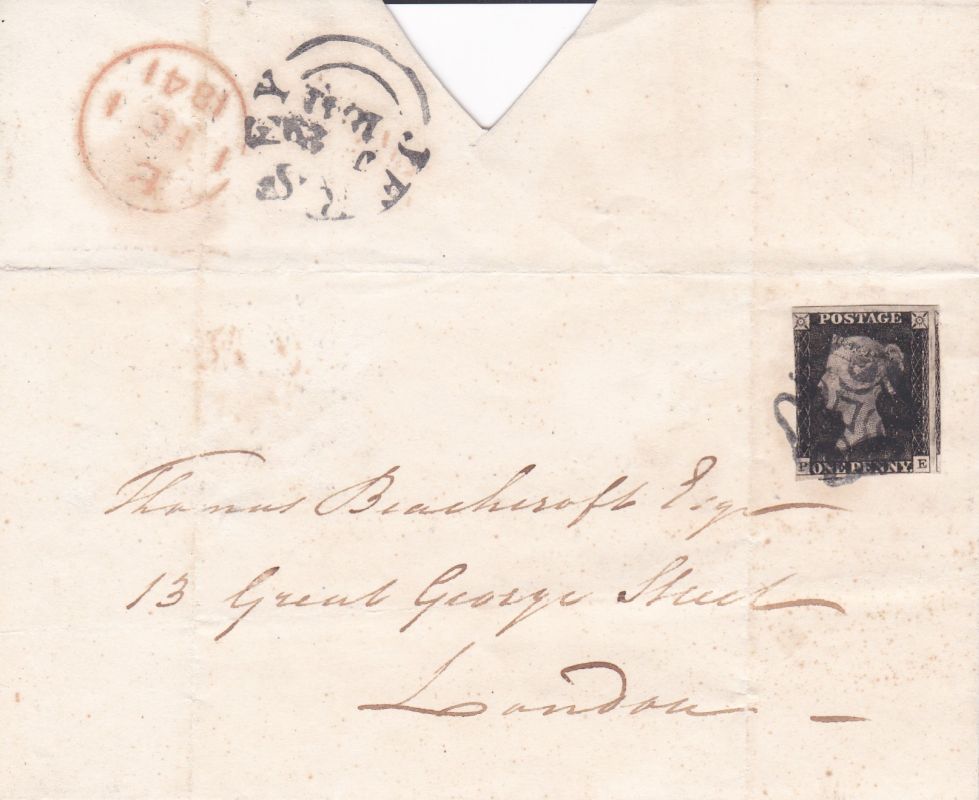 1841
FE 1
JERSEY
POSTAGE
P ONE PENNY. E
Thomas Beachcroft Esqr
13 Great George Street
London